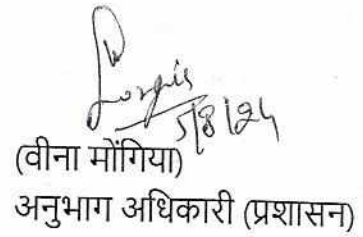 5/8/24
(वीना मोंगिया)
अनुभाग अधिकारी (प्रशासन)